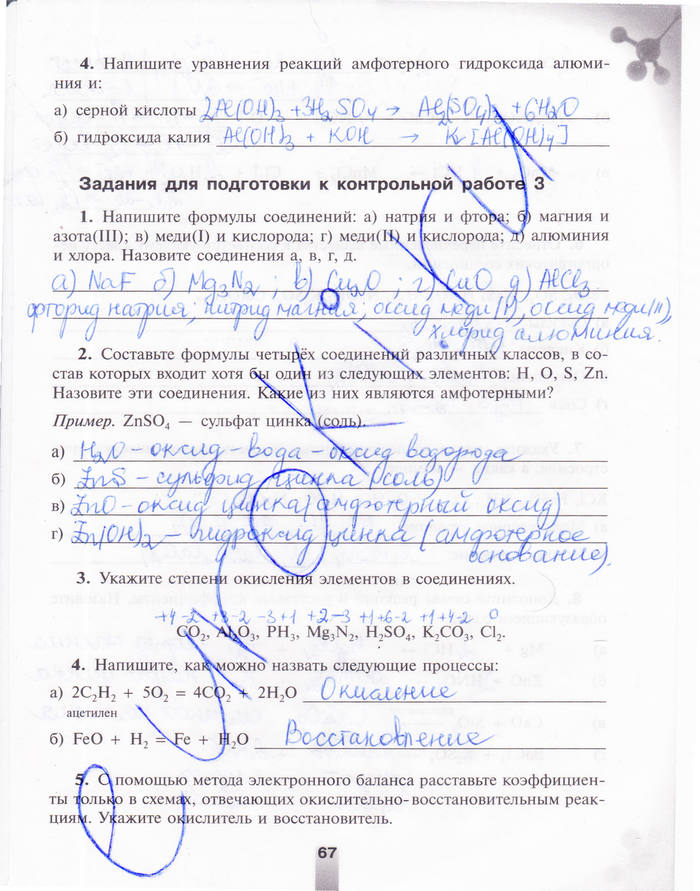 4. Напишите уравнения реакций амфотерного гидроксида алюми-
ния и:
а) серной кислоты 2Al(OH)₃ + 3H₂SO₄ → Al₂(SO₄)₃ + 6H₂O
б) гидроксида калия Al(OH)₃ + KOH → K[Al(OH)₄]
Задания для подготовки к контрольной работе 3
1. Напишите формулы соединений: а) натрия и фтора; б) магния и
азота(III); в) меди(I) и кислорода; г) меди(II) и кислорода; д) алюминия
и хлора. Назовите соединения а, в, г, д.
а) NaF б) Mg₃N₂ ; в) Cu₂O ; г) CuO д) AlCl₃
фторид натрия; нитрид магния; оксид меди(I), оксид меди(II),
хлорид алюминия.
2. Составьте формулы четырёх соединений различных классов, в со-
став которых входит хотя бы один из следующих элементов: H, O, S, Zn.
Назовите эти соединения. Какие из них являются амфотерными?
Пример. ZnSO₄ — сульфат цинка (соль).
а) H₂O - оксид - вода - оксид водорода
б) ZnS - сульфид цинка (соль)
в) ZnO - оксид цинка (амфотерный оксид)
г) Zn(OH)₂ - гидроксид цинка (амфотерное
основание).
3. Укажите степени окисления элементов в соединениях.
+4 -2 +3 -2 -3 +1 +2 -3 +1 +6 -2 +1 +4 -2 0
CO₂, Al₂O₃, PH₃, Mg₃N₂, H₂SO₄, K₂CO₃, Cl₂.
4. Напишите, как можно назвать следующие процессы:
а) 2C₂H₂ + 5O₂ = 4CO₂ + 2H₂O Окисление
ацетилен
б) FeO + H₂ = Fe + H₂O Восстановление
5. С помощью метода электронного баланса расставьте коэффициен-
ты только в схемах, отвечающих окислительно-восстановительным реак-
циям. Укажите окислитель и восстановитель.
67